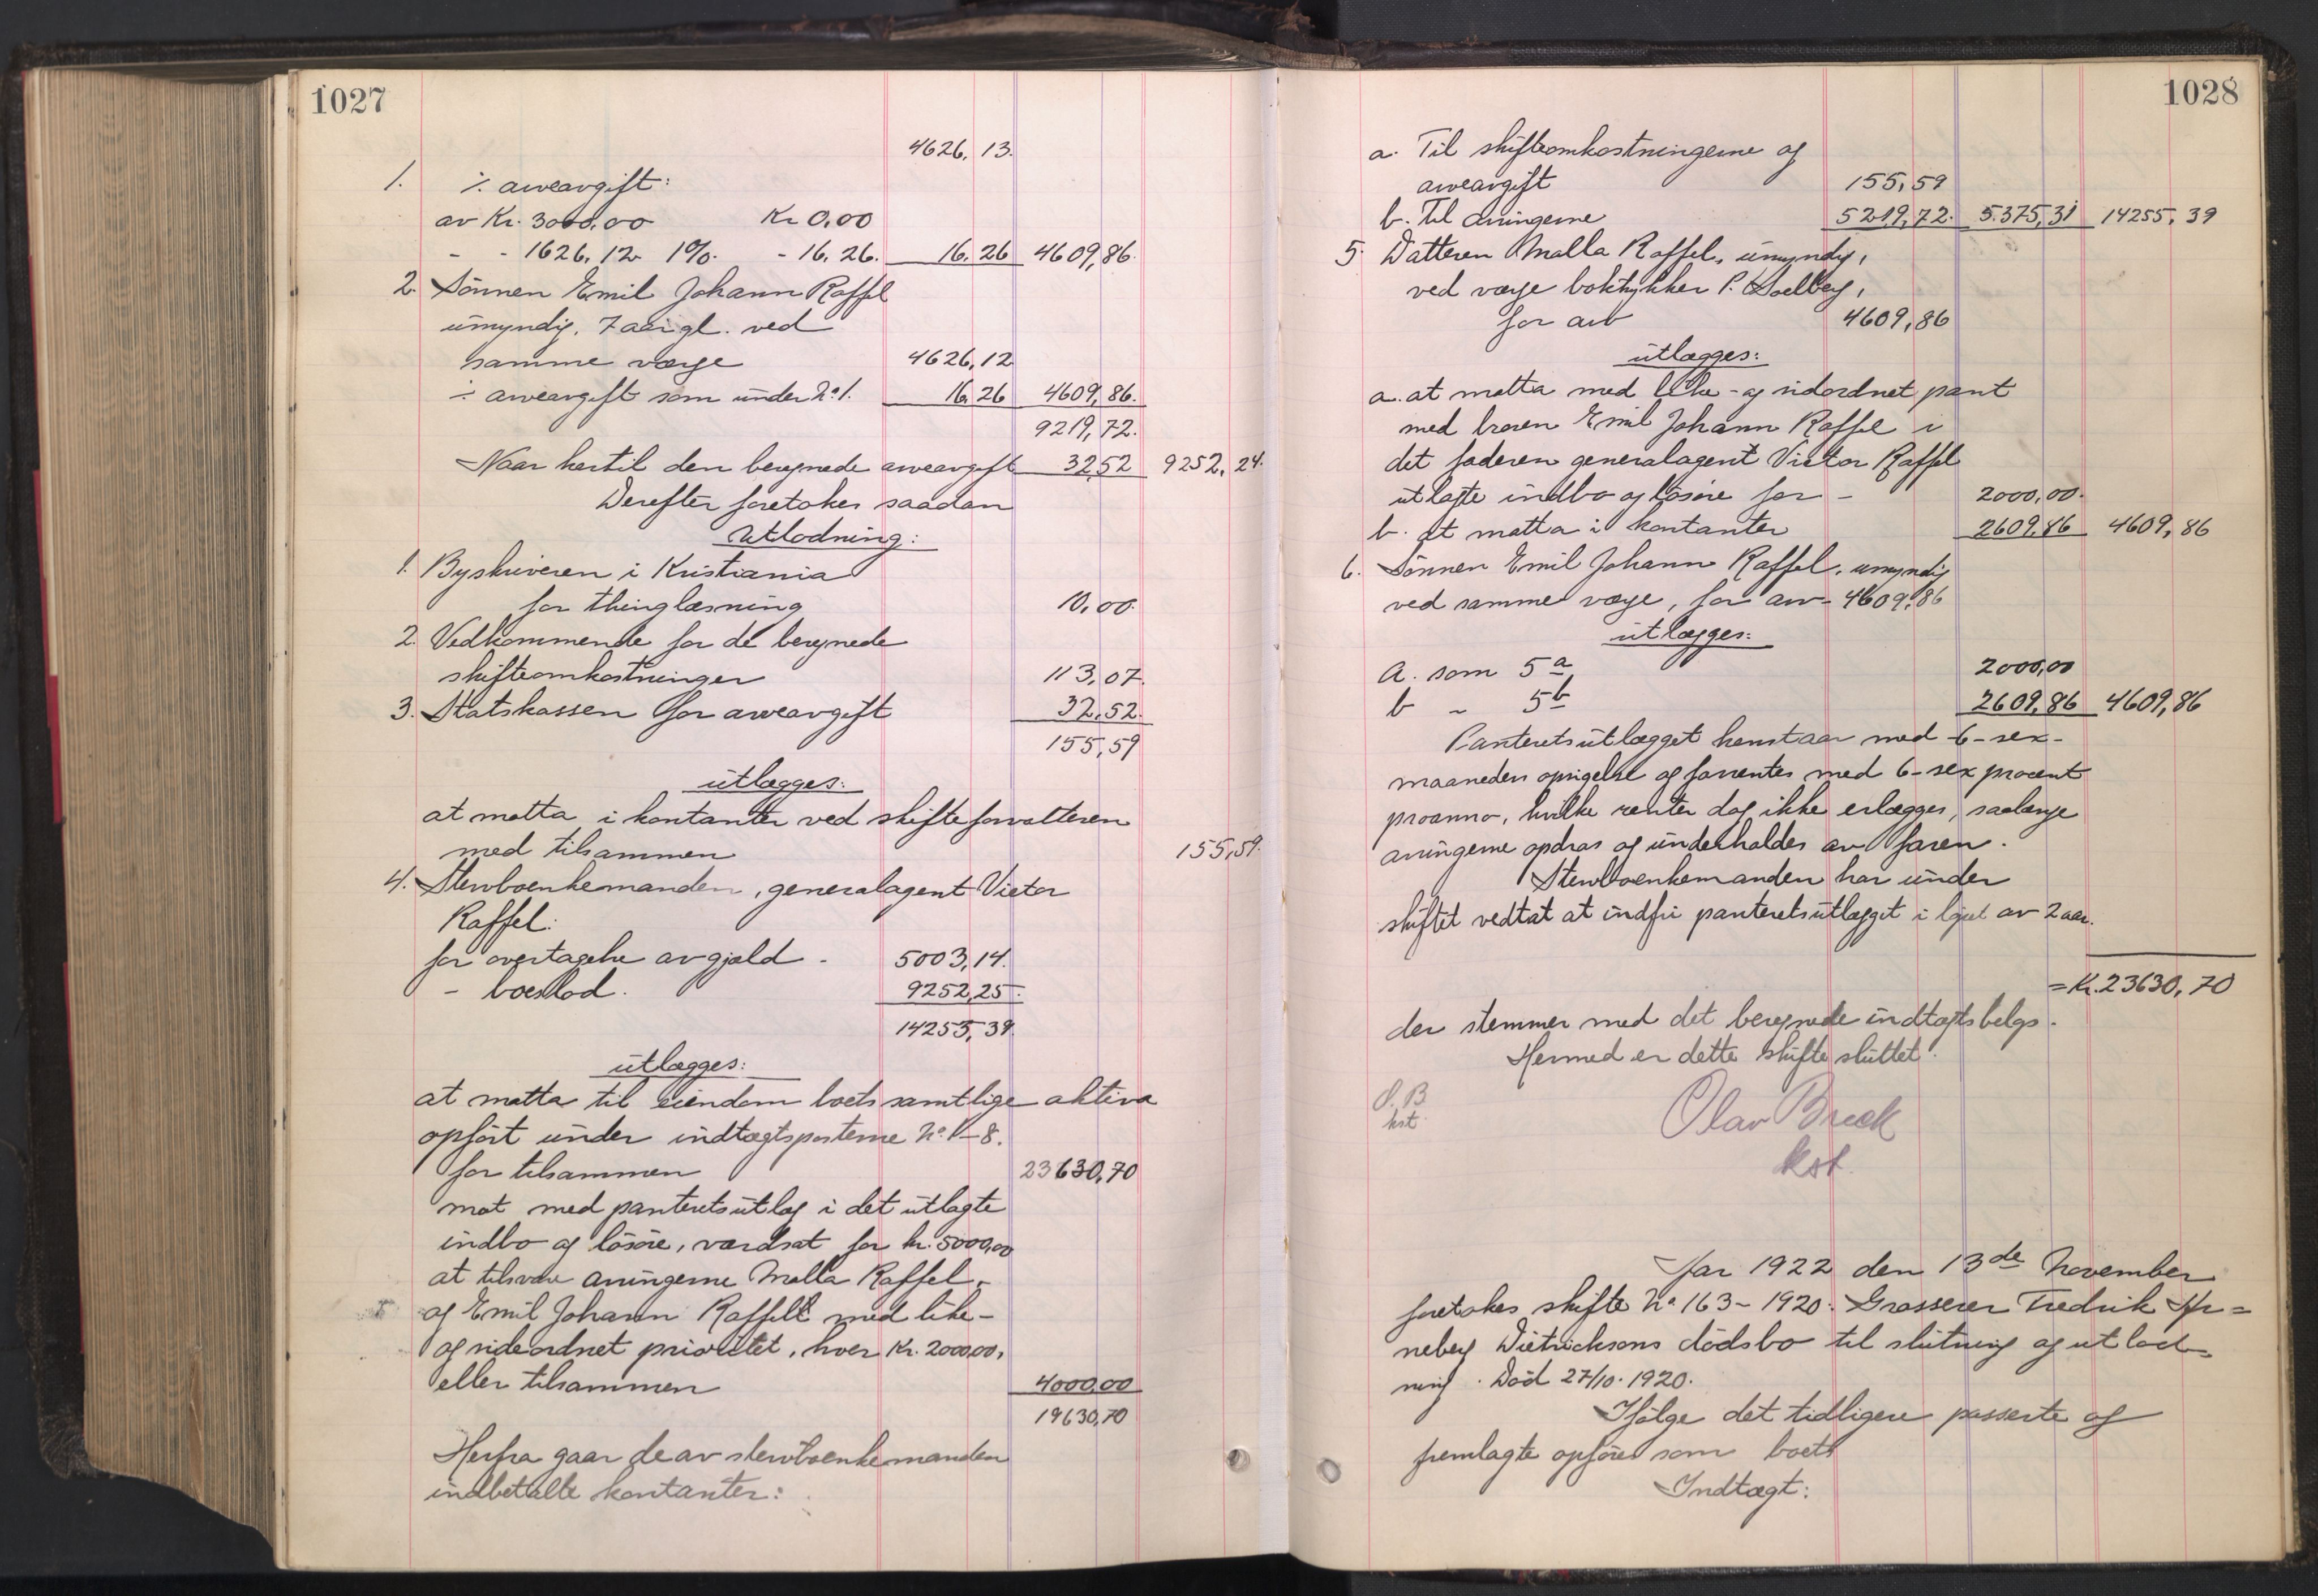 1027
4626,13.
1. ÷ arveavgift:
av Kr. 3000,00 Kr 0,00
- - 1626,12 1% - 16,26. 16,26 4609,86.
2. Sönnen Emil Johann Raffel
umyndig, 7 aar gl. ved
samme verge 4626,12
÷ arveavgift som under No 1. 16,26 4609,86.
9219,72.
Naar hertil den beregnede arveavgift 32,52 9252,24.
Derefter foretokes saadan
Utlodning:
1. Byskriveren i Kristiania
for thinglæsning 10,00.
2. Vedkommende for de beregnede
skifteomkostninger 113,07.
3. Statskassen for arveavgift 32,52.
155,59
utlægges:
at motta i kontanter ved skifteforvalteren
med tilsammen 155,59.
4. Stervboenkemanden, generalagent Victor
Raffel:
for overtagelse av gjæld - 5003,14.
- boeslod. 9252,25.
14255,39.
utlægges:
at motta til eiendom boets samtlige aktiva
opfört under indtægtsposterne No 1-8.
for tilsammen 23630,70
mot med panteretsutlæg i det utlagte
indbo og lösöre, værdsat for kr. 5000,00
at tilsvare arvingerne Malla Raffel,
og Emil Johann Raffell med like-
og sideordnet prioritet, hver Kr. 2000,00,
eller tilsammen 4000,00
19630,70
Herfra gaar de av stervboenkemanden
indbetalte kontanter:
1028
a. Til skifteomkostningerne og
arveavgift 155,59
b. Til arvingerne 5219,72. 5.375,31 14255,39
5. Datteren Malla Raffel, umyndig,
ved verge boktrykker P. Soelberg,
for arv 4609,86
utlægges:
a. at motta med like- og sidordnet pant
med broren Emil Johann Raffel i
det faderen generalagent Victor Raffel
utlagte indbo og lösöre for - 2000,00.
b. at motta i kontanter 2609,86 4609,86
6. Sönnen Emil Johann Raffel, umyndig
ved samme verge, for arv - 4609,86
utlægges:
a. som 5a 2000,00
b - 5b 2609,86 4609,86
Panteretsutlægget henstaar med 6-sex-
maaneders opsigelse og forrentes med 6-sex procent
proanno, hvilke renter dog ikke erlægges, saalænge
arvingerne opdras og underholdes av faren.
Stervboenkemanden har under
skiftet vedtat at indfri panteretsutlægget i löpet av 2 aar.
= Kr. 23630,70
der stemmer med det beregnede indtægtsbelöp.
Hermed er dette skifte sluttet.
O. B
kst.
Olav Breek
kst.
Aar 1922 den 13de November
foretokes skifte No 163-1920. Grosserer Fredrik Ar=
neberg Dietrichsons dödsbo til slutning og utlod-
ning. Död 27/10. 1920.
Ifölge det tidligere passerte og
fremlagte opföres som boets
Indtægt: